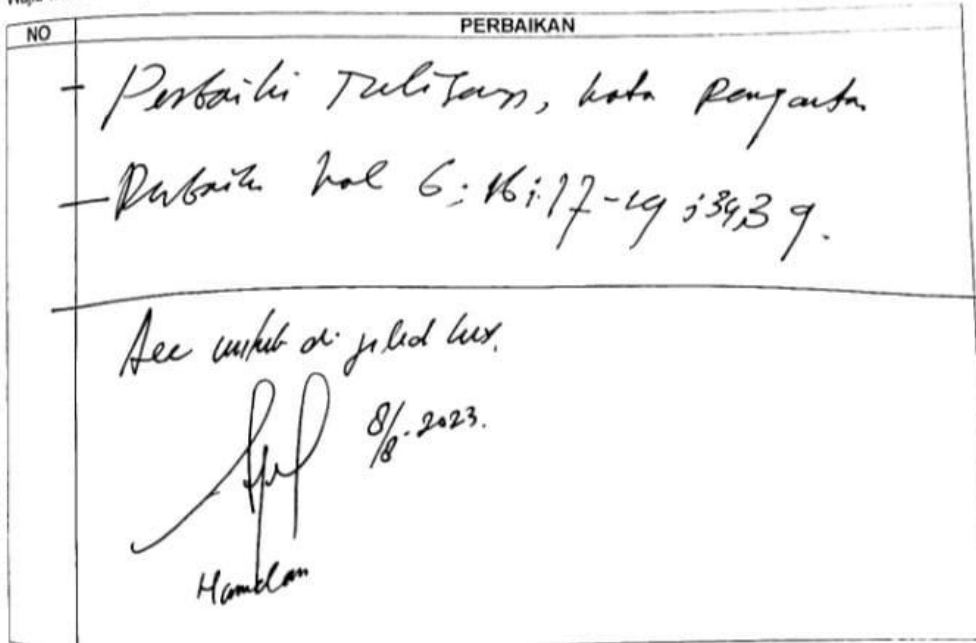 NO PERBAIKAN
- Perbaiki Tulisan, kata pengantar
- Perbaiki hal 6; 16; 17-19; 34,39.
Acc untuk di jilid lux.
8/8-2023.
Hamdan